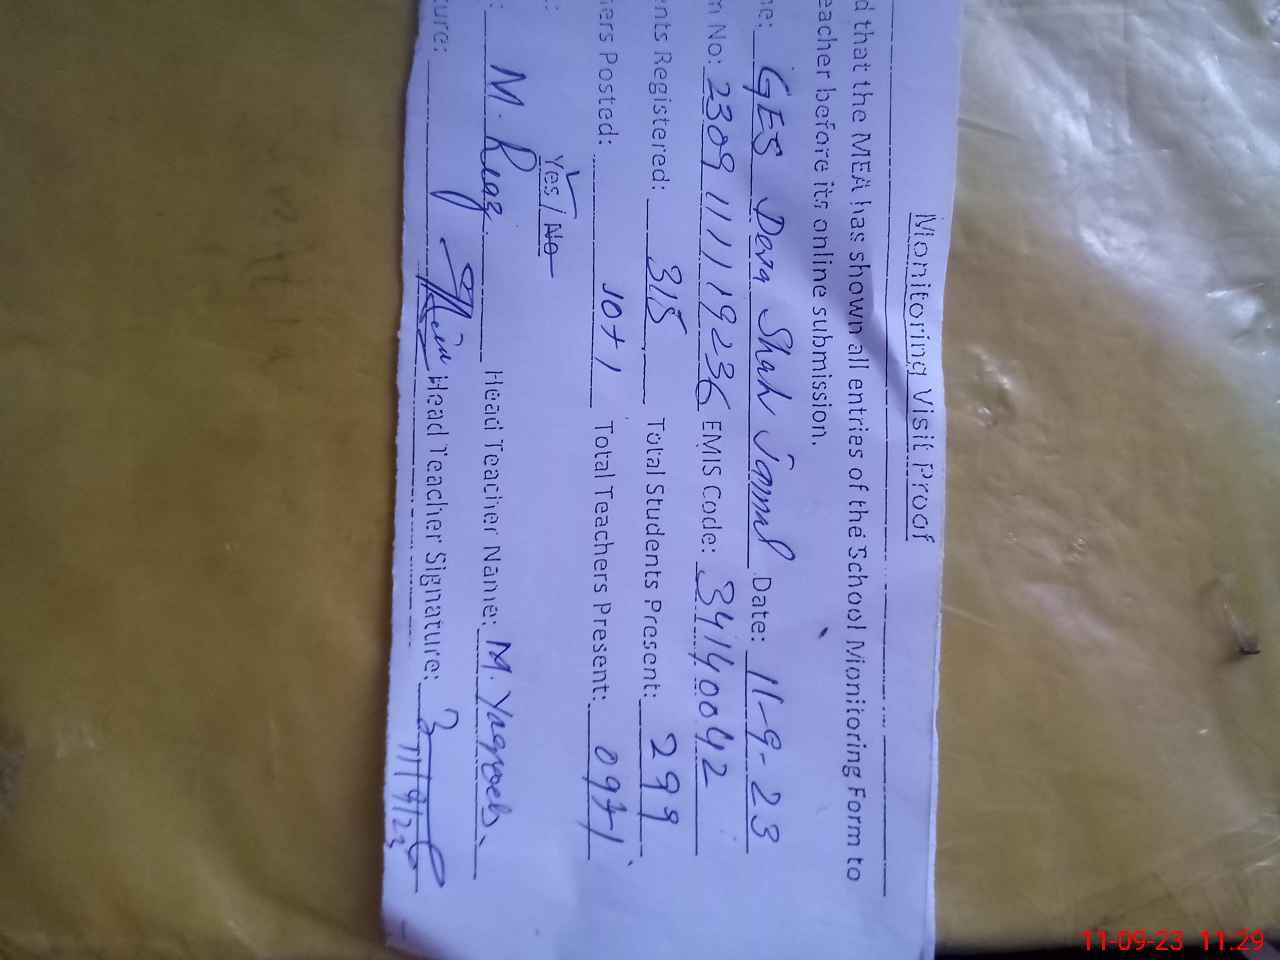 Monitoring Visit Proof
d that the MEA has shown all entries of the School Monitoring Form to
eacher before its online submission.
ne: GES Dera Shah Jamal Date: 11-9-23
n No: 2309111119236 EMIS Code: 34140042
nts Registered: 315 Total Students Present: 299
ers Posted: 10+1 Total Teachers Present: 09+1
: Yes / No
: M. Riaz Head Teacher Name: M. Yaqoob
ure: Head Teacher Signature:
11/9/23
11-09-23 11.29